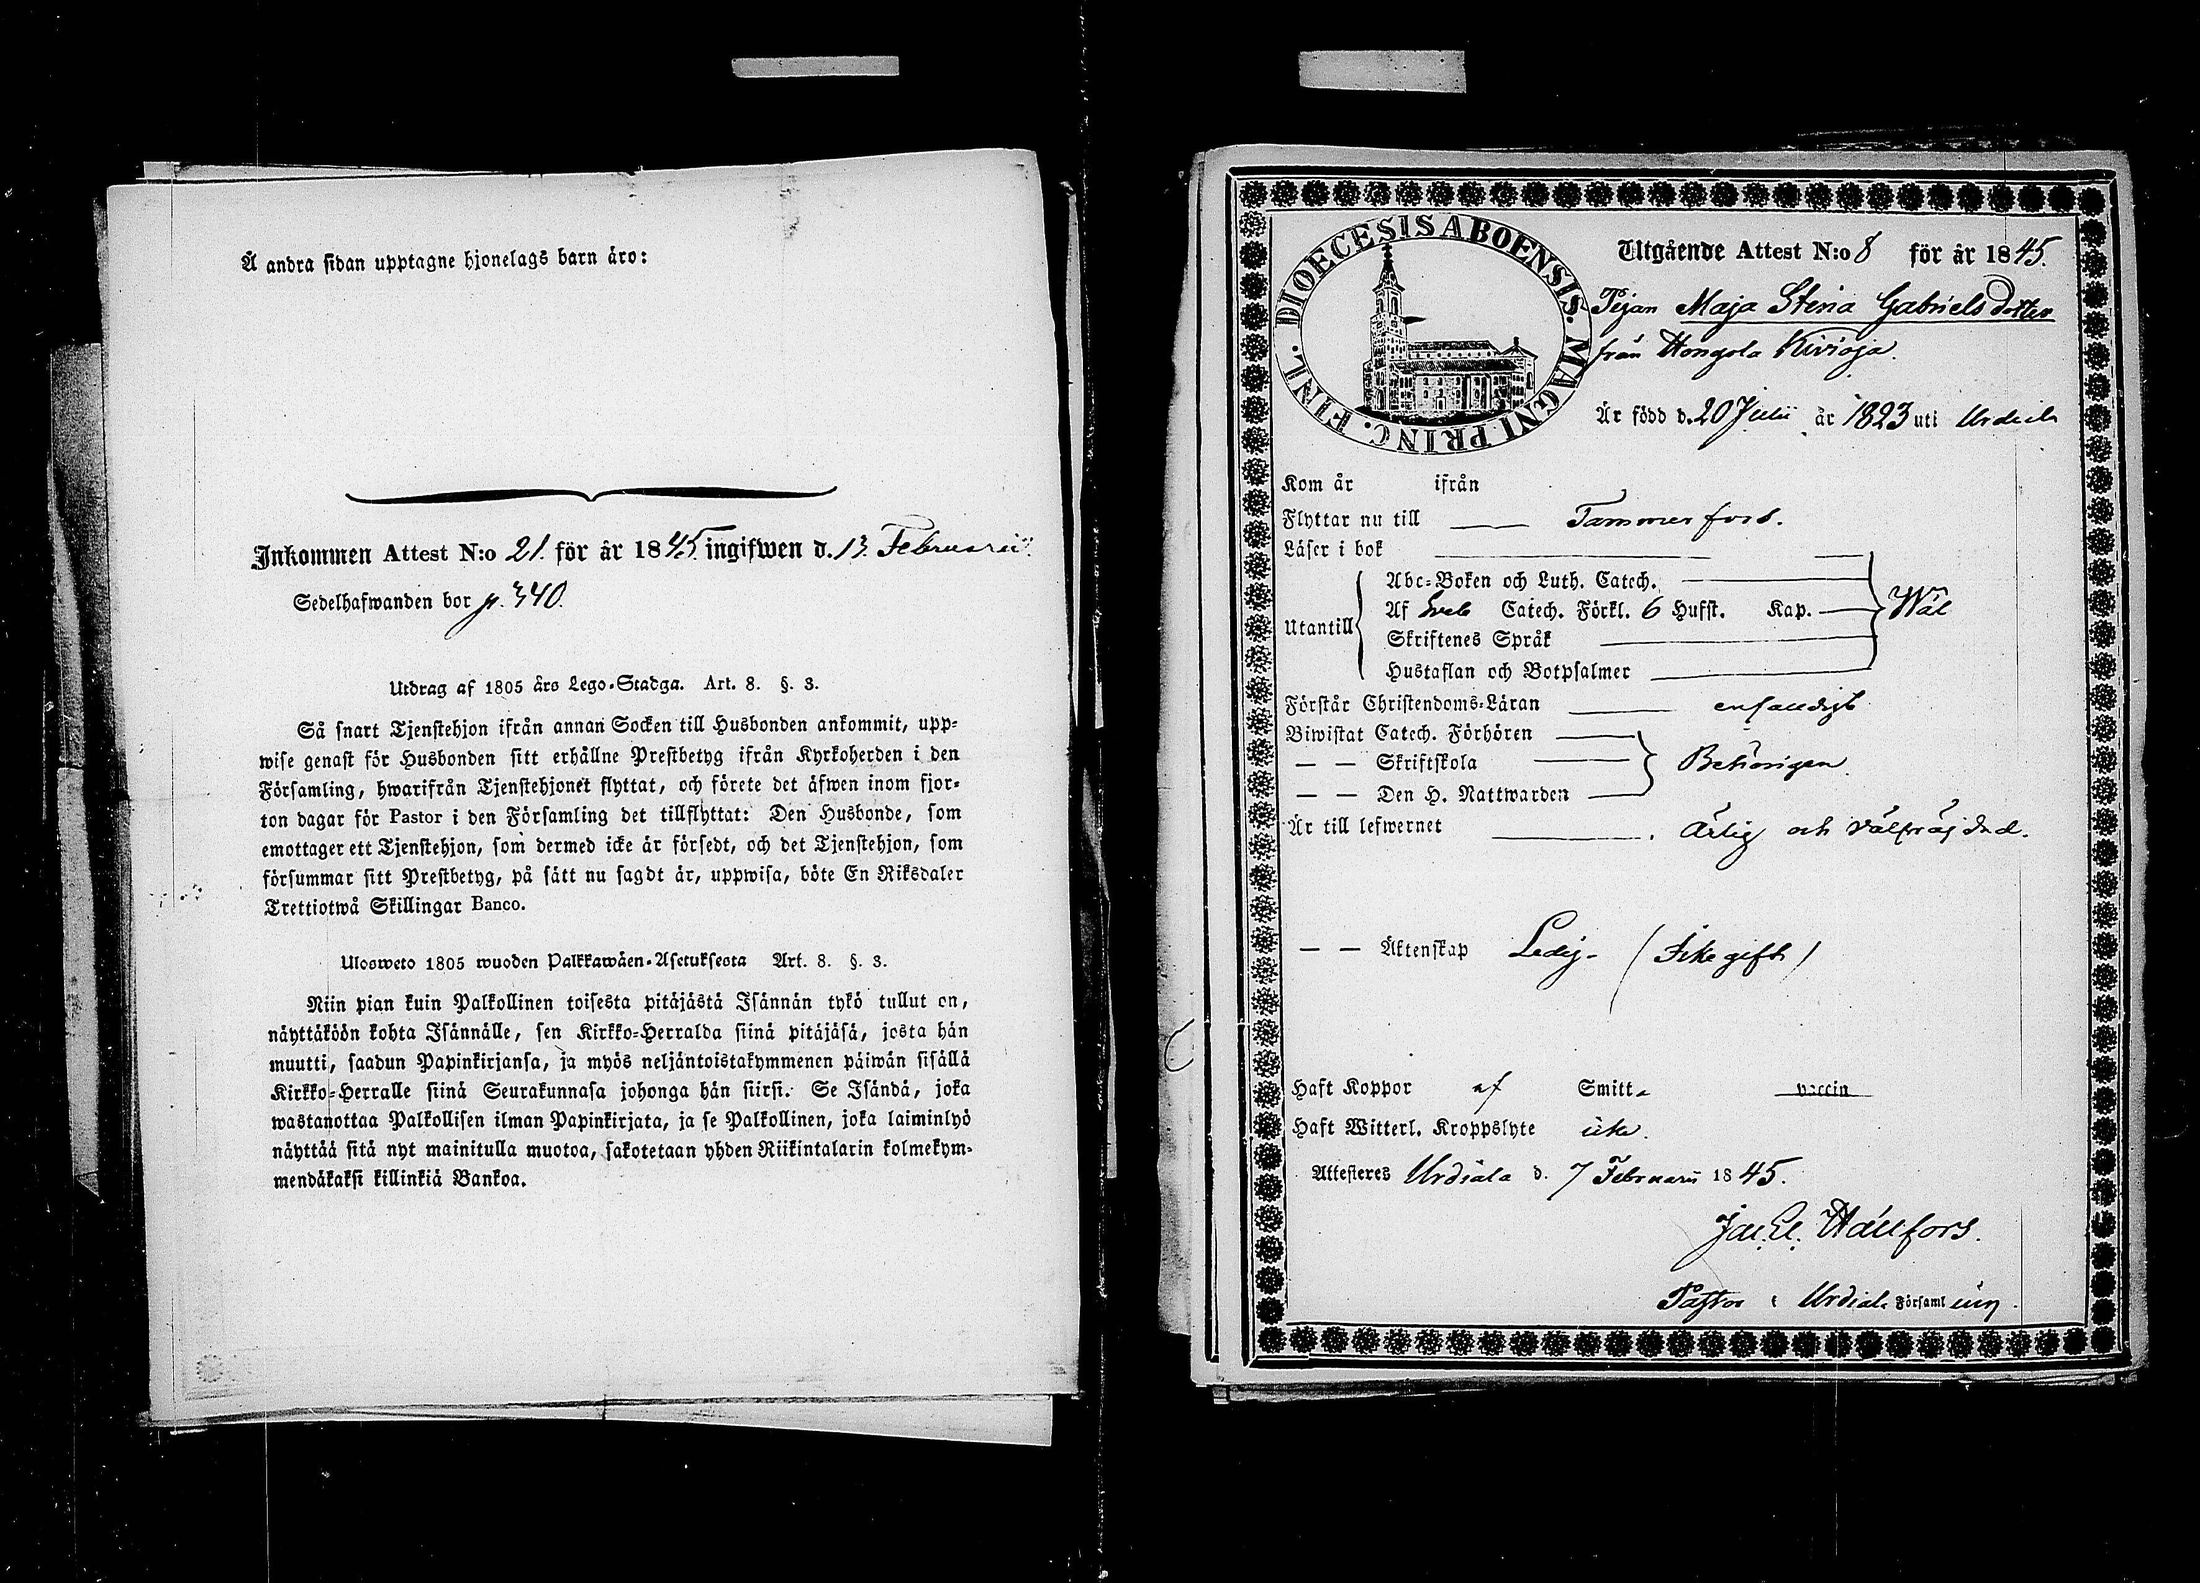 Å andra sidan upptagne hjonelags barn äro:
Inkommen Attest N:o 21. för år 1845 ingifwen d. 13. Februarii
Sedelhafwanden bor p. 340.
Utdrag af 1805 års Lego-Stadga. Art. 8. §. 3.
Så snart Tjenstehjon ifrån annan Socken till Husbonden ankommit, upp-
wise genast för Husbonden sitt erhållne Prestbetyg ifrån Kyrkoherden i den
Församling, hwarifrån Tjenstehjonet flyttat, och förete det äfwen inom fjor-
ton dagar för Pastor i den Församling det tillflyttat: Den Husbonde, som
emottager ett Tjenstehjon, som dermed icke är försedt, och det Tjenstehjon, som
försummar sitt Prestbetyg, på sätt nu sagdt är, uppwisa, böte En Riksdaler
Trettiotwå Skillingar Banco.
Ulosweto 1805 wuoden Palkkawäen-Asetuksesta Art. 8. §. 3.
Niin pian kuin Palkollinen toisesta pitäjästä Isännän tykö tullut on,
näyttäköön kohta Isännälle, sen Kirkko-Herralda siinä pitäjäsä, josta hän
muutti, saadun Papinkirjansa, ja myös neljäntoistakymmenen päiwän sisällä
Kirkko-Herralle siinä Seurakunnasa johonga hän siirsi. Se Isändä, joka
wastanottaa Palkollisen ilman Papinkirjata, ja se Palkollinen, joka laiminlyö
näyttää sitä nyt mainitulla muotoa, sakotetaan yhden Riikintalarin kolmekym-
mendäkaksi killinkiä Bankoa.
DIOECESIS ABOENSIS. MAGNI PRINC. FINL.
Utgående Attest N:o 8 för år 1845.
Pigan Maja Stina Gabrielsdotter
från Hongola Kivioja.
Är född d. 20 Julii år 1823 uti Urdiala
Kom år ifrån
Flyttar nu till Tammerfors.
Läser i bok
Abc-Boken och Luth. Catech.
Utantill Af Sveb Catech. Förkl. 6 Hufst. Kap. Wäl
Skriftenes Språk
Hustaflan och Botpsalmer
Förstår Christendoms-Läran enfaldigt
Biwistat Catech. Förhören
— — Skriftskola Behörigen
— — Den H. Nattwarden
Är till lefwernet Ärlig och välfräjdad.
— — Äktenskap Ledig (Icke gift)
Haft Koppor af Smitta vaccin
Haft Witterl. Kroppslyte icke.
Attesteres Urdiala d. 7 Februarii 1845.
Hällfors.
Pastor i Urdiala Församling.